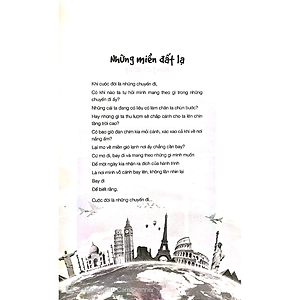 Những miền đất lạ
Khi cuộc đời là những chuyến đi,
Có khi nào ta tự hỏi mình mang theo gì trong những
chuyến đi ấy?
Những cái ta đang có liệu có làm chân ta chùn bước?
Hay những gì ta thu lượm sẽ chắp cánh cho ta lên chín
tầng trời cao?
Có bao giờ đàn chim kia mỏi cánh, xác xao cả khi về nơi
nắng ấm?
Lại mơ về miền gió lạnh nơi ấy chẳng cần bay?
Cứ mơ đi, bay đi và mang theo những gì mình muốn
Để một ngày kia nhận ra đích của hành trình
Là nơi mình vỗ cánh bay lên, không lần nhìn lại
Bay đi
Để biết rằng,
Cuộc đời là những chuyến đi...